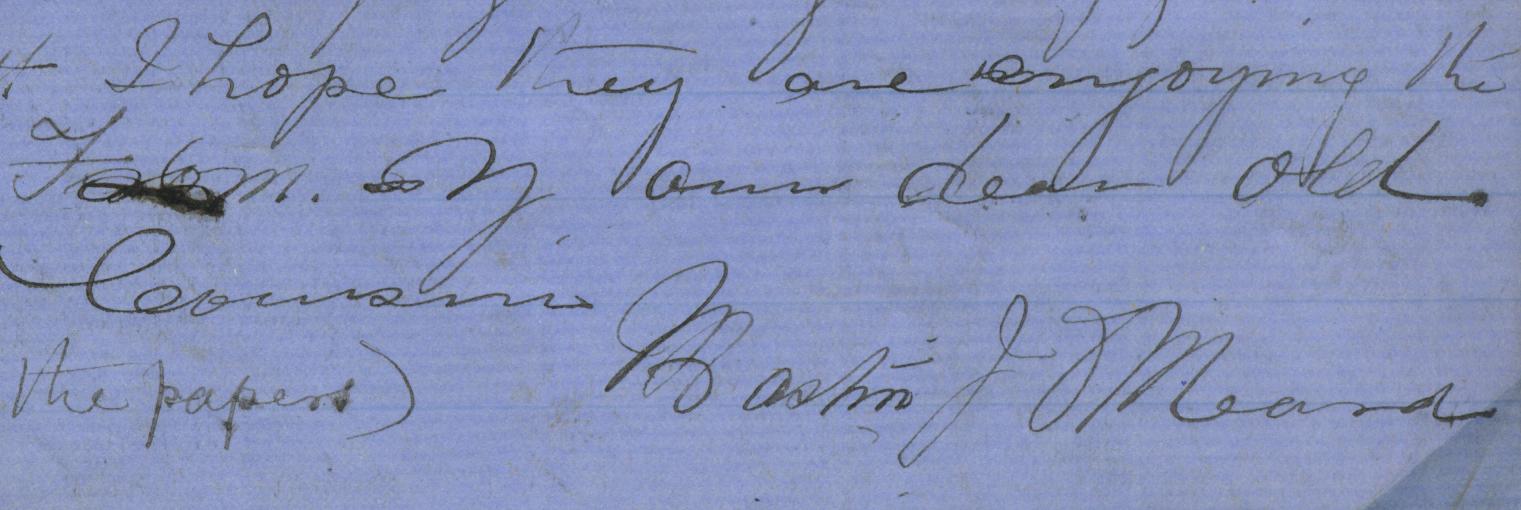 I hope they are enjoying the
of our dear old
Cousin
the papers) J Meard